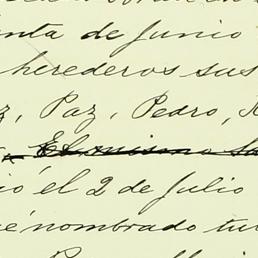 nta de Junio
herederos sus
z, Paz, Pedro, R
El mismo
ió el 2 de Julio
é nombrado tu